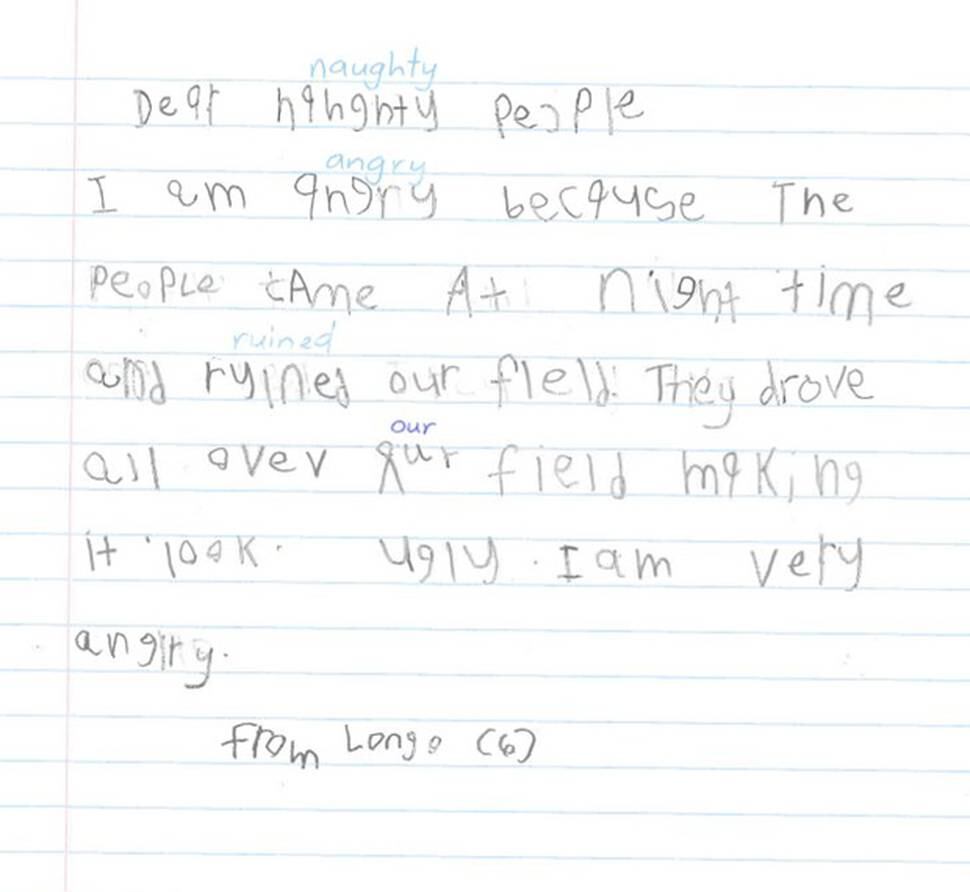 naughty
Dear nahghty people
angry
I am angry because The
PeoPLe cAme At night time
ruined
and ruined our field. They drove
our
all over our field making
it look. ugly. I am very
angry.
from Longo (6)